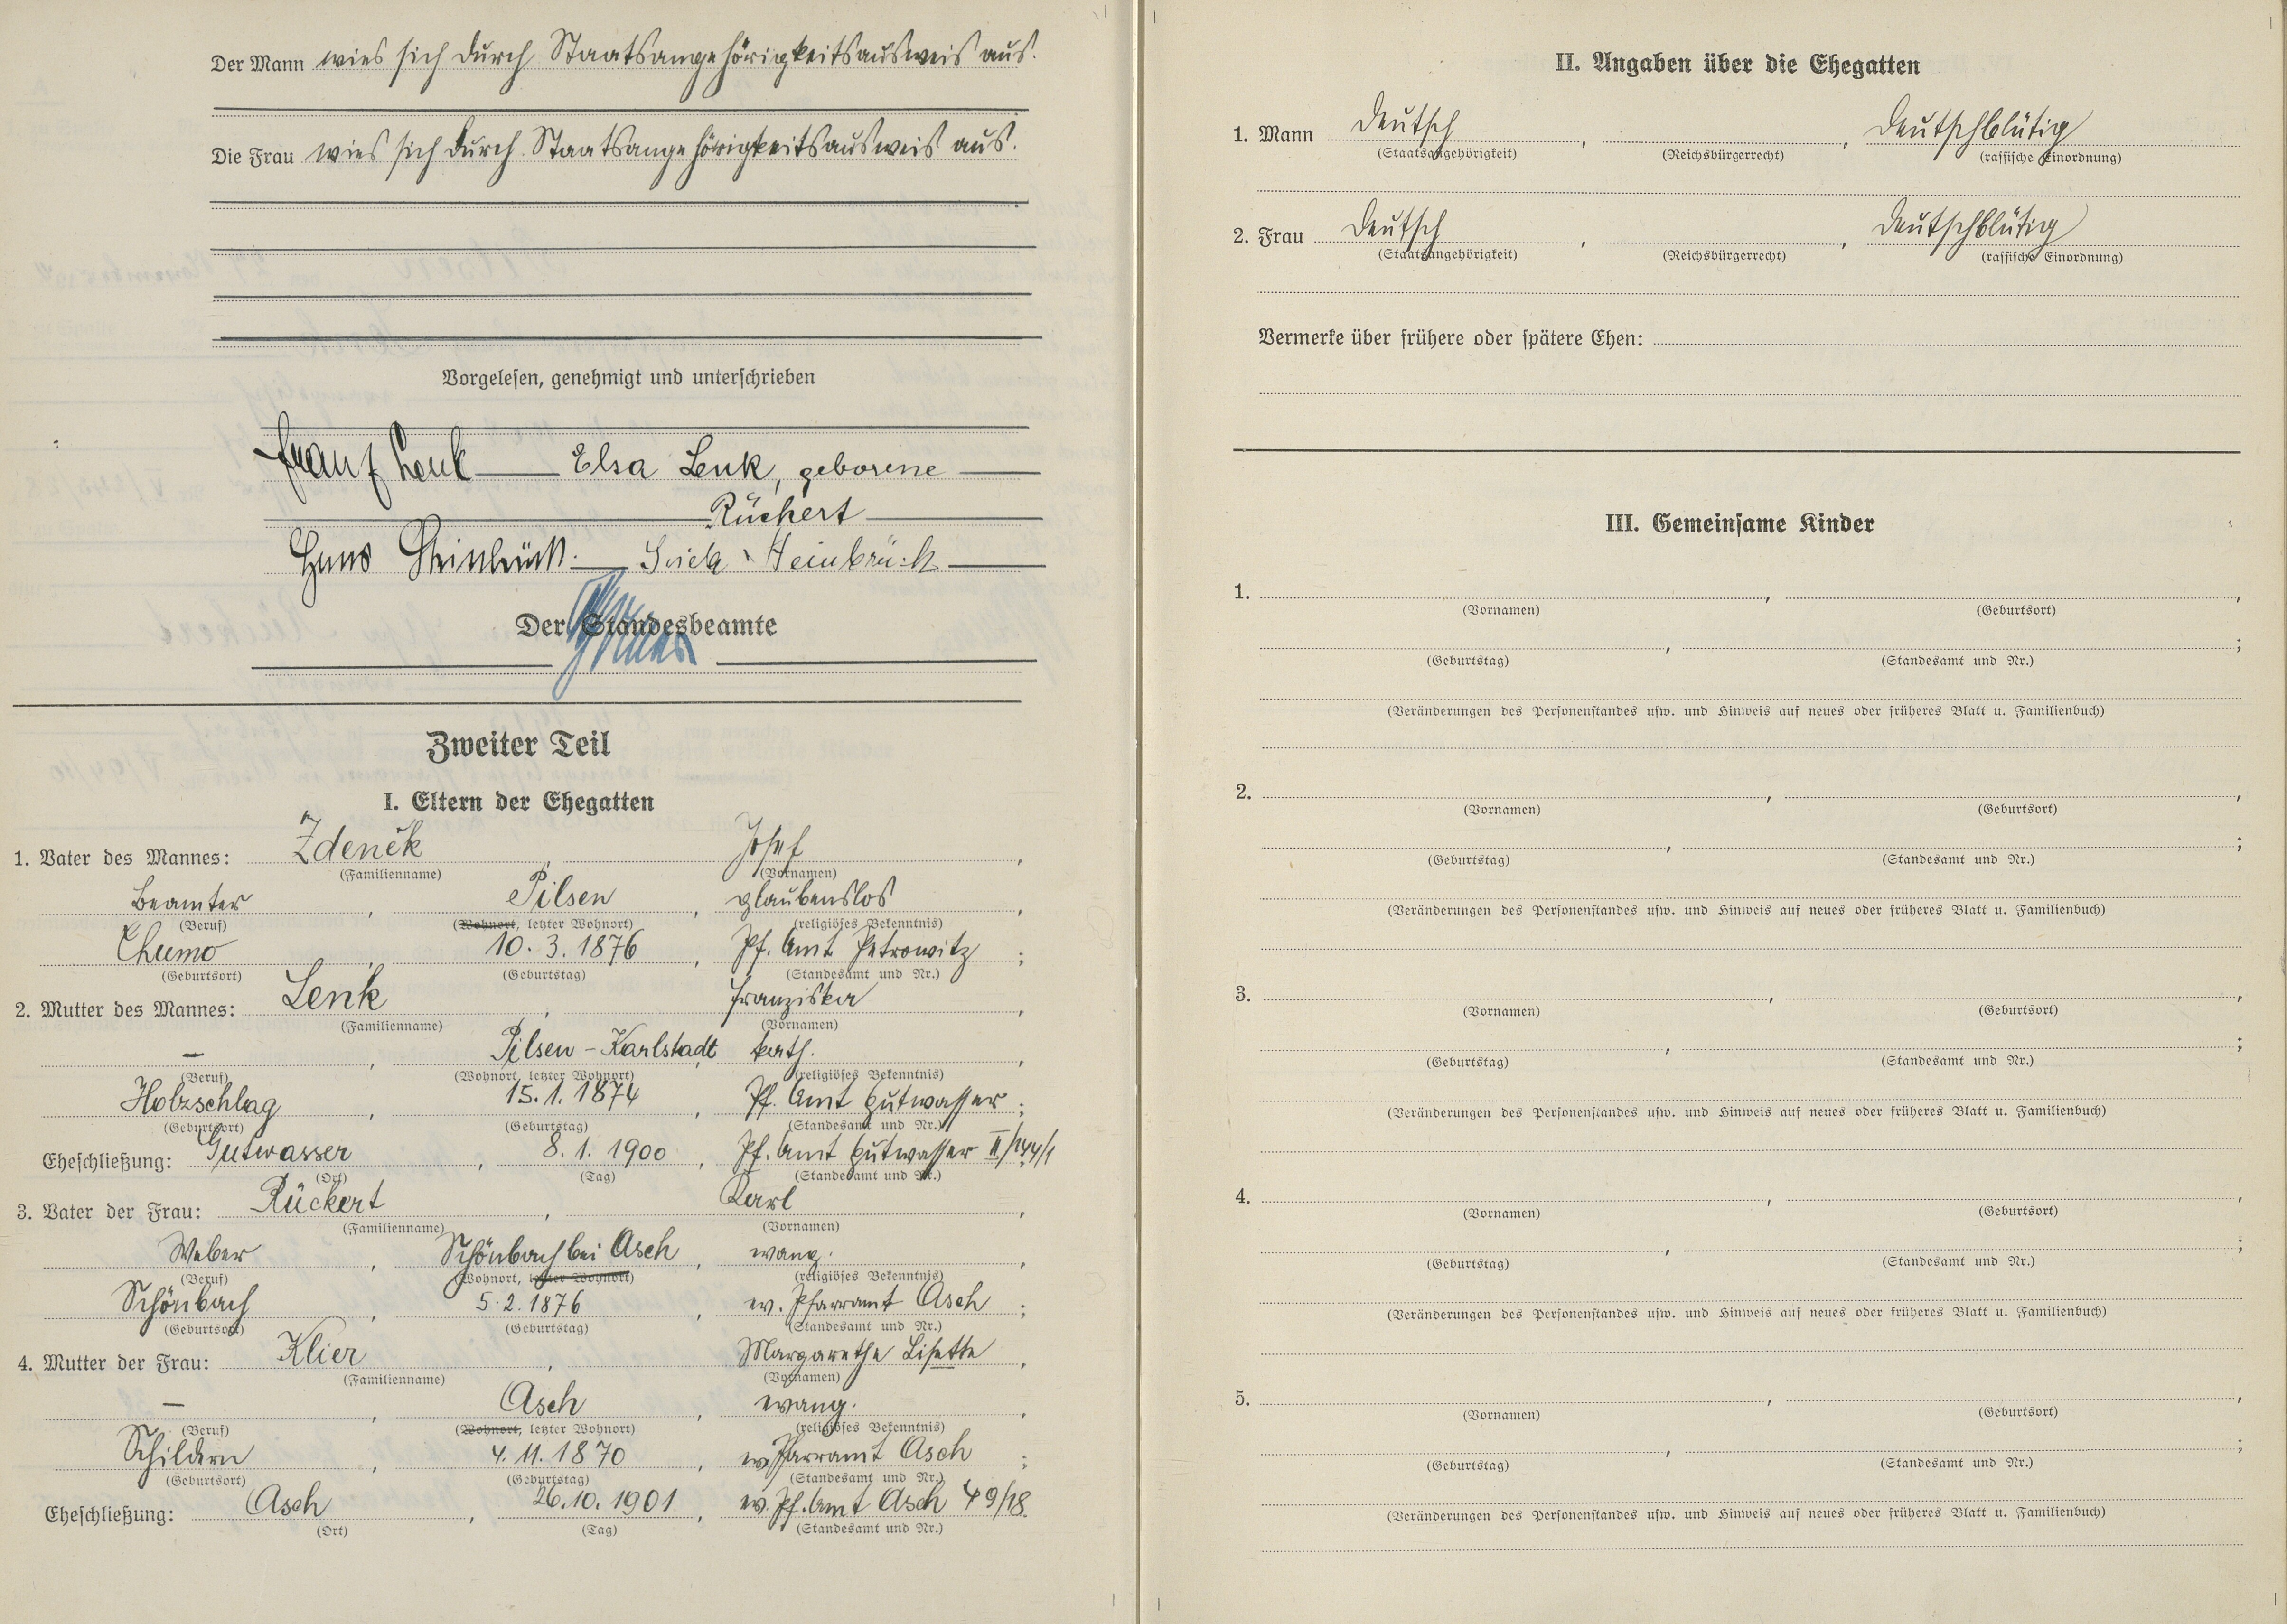 Der Mann wies sich durch Staatsangehörigkeitsausweis aus.
Die Frau wies sich durch Staatsangehörigkeitsausweis aus.
Vorgelesen, genehmigt und unterschrieben
Franz Lenk Elsa Lenk, geborene
Rückert
Hans Steinbrück. Steinbrück
Der Standesbeamte
Zweiter Teil
I. Eltern der Ehegatten
1. Vater des Mannes: Zdeněk, Josef,
(Familienname) (Vornamen)
Beamter, Pilsen, glaubenslos,
(Beruf) (Wohnort, letzter Wohnort) (religiöses Bekenntnis)
Chumo, 10.3.1876, Pf. Amt Petrowitz;
(Geburtsort) (Geburtstag) (Standesamt und Nr.)
2. Mutter des Mannes: Lenk, Franziska,
(Familienname) (Vornamen)
–, Pilsen-Karlstadt, kath.,
(Beruf) (Wohnort, letzter Wohnort) (religiöses Bekenntnis)
Holzschlag, 15.1.1874, Pf. Amt Gutwasser;
(Geburtsort) (Geburtstag) (Standesamt und Nr.)
Eheschließung: Gutwasser, 8.1.1900, Pf. Amt Gutwasser II/144/1
(Ort) (Tag) (Standesamt und Nr.)
3. Vater der Frau: Rückert, Karl,
(Familienname) (Vornamen)
Weber, Schönbach bei Asch, evang.,
(Beruf) (Wohnort, letzter Wohnort) (religiöses Bekenntnis)
Schönbach, 5.2.1876, ev. Pfarramt Asch;
(Geburtsort) (Geburtstag) (Standesamt und Nr.)
4. Mutter der Frau: Klier, Margarethe Lisette,
(Familienname) (Vornamen)
–, Asch, evang.,
(Beruf) (Wohnort, letzter Wohnort) (religiöses Bekenntnis)
Schildern, 4.11.1870, ev. Pfarramt Asch;
(Geburtsort) (Geburtstag) (Standesamt und Nr.)
Eheschließung: Asch, 26.10.1901, ev. Pf. Amt Asch 49/18.
(Ort) (Tag) (Standesamt und Nr.)
II. Angaben über die Ehegatten
1. Mann Deutsch, , Deutschblütig
(Staatsangehörigkeit) (Reichsbürgerrecht) (rassische Einordnung)
2. Frau Deutsch, , Deutschblütig
(Staatsangehörigkeit) (Reichsbürgerrecht) (rassische Einordnung)
Vermerke über frühere oder spätere Ehen:
III. Gemeinsame Kinder
1. , ,
(Vornamen) (Geburtsort)
, ;
(Geburtstag) (Standesamt und Nr.)
(Veränderungen des Personenstandes usw. und Hinweis auf neues oder früheres Blatt u. Familienbuch)
2. , ,
(Vornamen) (Geburtsort)
, ;
(Geburtstag) (Standesamt und Nr.)
(Veränderungen des Personenstandes usw. und Hinweis auf neues oder früheres Blatt u. Familienbuch)
3. , ,
(Vornamen) (Geburtsort)
, ;
(Geburtstag) (Standesamt und Nr.)
(Veränderungen des Personenstandes usw. und Hinweis auf neues oder früheres Blatt u. Familienbuch)
4. , ,
(Vornamen) (Geburtsort)
, ;
(Geburtstag) (Standesamt und Nr.)
(Veränderungen des Personenstandes usw. und Hinweis auf neues oder früheres Blatt u. Familienbuch)
5. , ,
(Vornamen) (Geburtsort)
, ;
(Geburtstag) (Standesamt und Nr.)
(Veränderungen des Personenstandes usw. und Hinweis auf neues oder früheres Blatt u. Familienbuch)